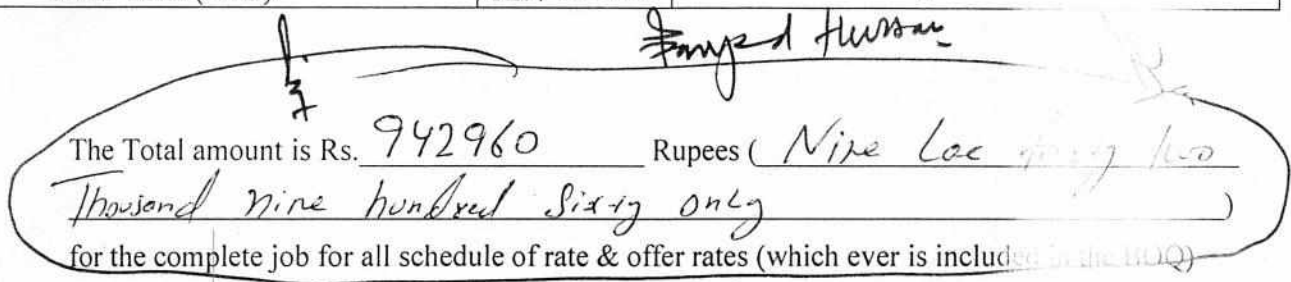 Hussain
The Total amount is Rs. 942960 Rupees ( Nine Lac two
Thousand nine hundred Sixty only )
for the complete job for all schedule of rate & offer rates (which ever is included in the BOQ)